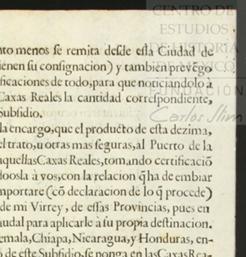 CENTRO DE
ESTUDIOS
nto menos se remita desde essa Ciudad de
ienen su consignacion) y tambien prevẽgo
ficaciones de todo, para que noticiandolo à
Caxas Reales la cantidad correspondiente,
Subsidio.
Carlos Slim
la encargo, que el producto de esta dezima,
el trato, u otras mas seguras, al Puerto de la
aquellas Caxas Reales, tomando certificació
doosla à vos, con la relacion q̃ ha de embiar
mportare (cõ declaracion de lo q̃ procede)
de mi Virrey, de essas Provincias, pues en
audal para aplicarle à su propia destinacion.
emala, Chiapa, Nicaragua, y Honduras, en-
ò de este Subsidio, se ponga en las Caxas Rea-